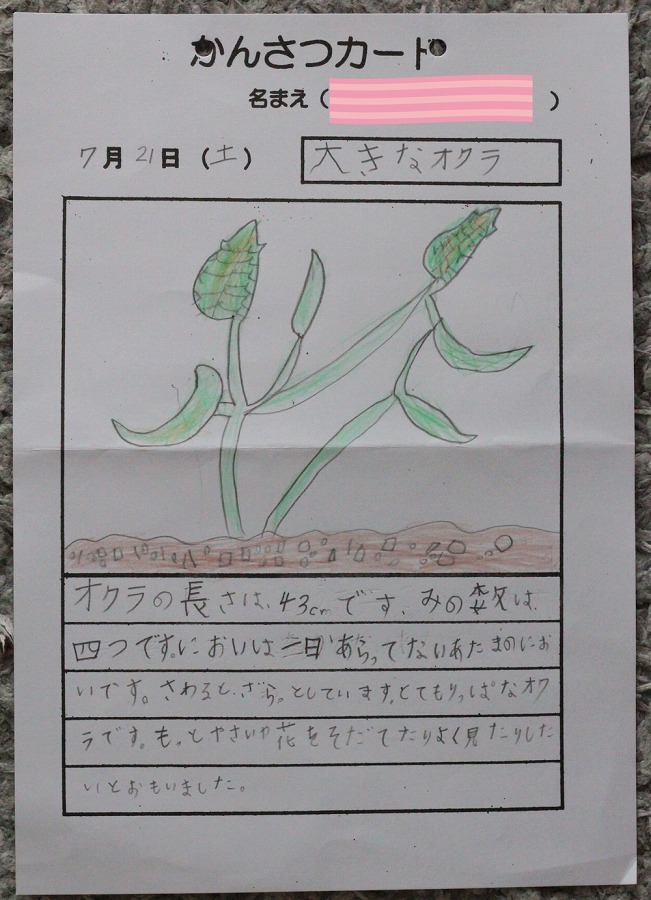 かんさつカード
名まえ( )
7月21日(土) 大きなオクラ
オクラの長さは、43cmです、みの数は
四つです。においは三日あらってないあたまのにお
いです。さわると、ざらっとしています。とてもりっぱなオク
ラです。もっとやさいや花をそだてたりよく見たりした
いとおもいました。